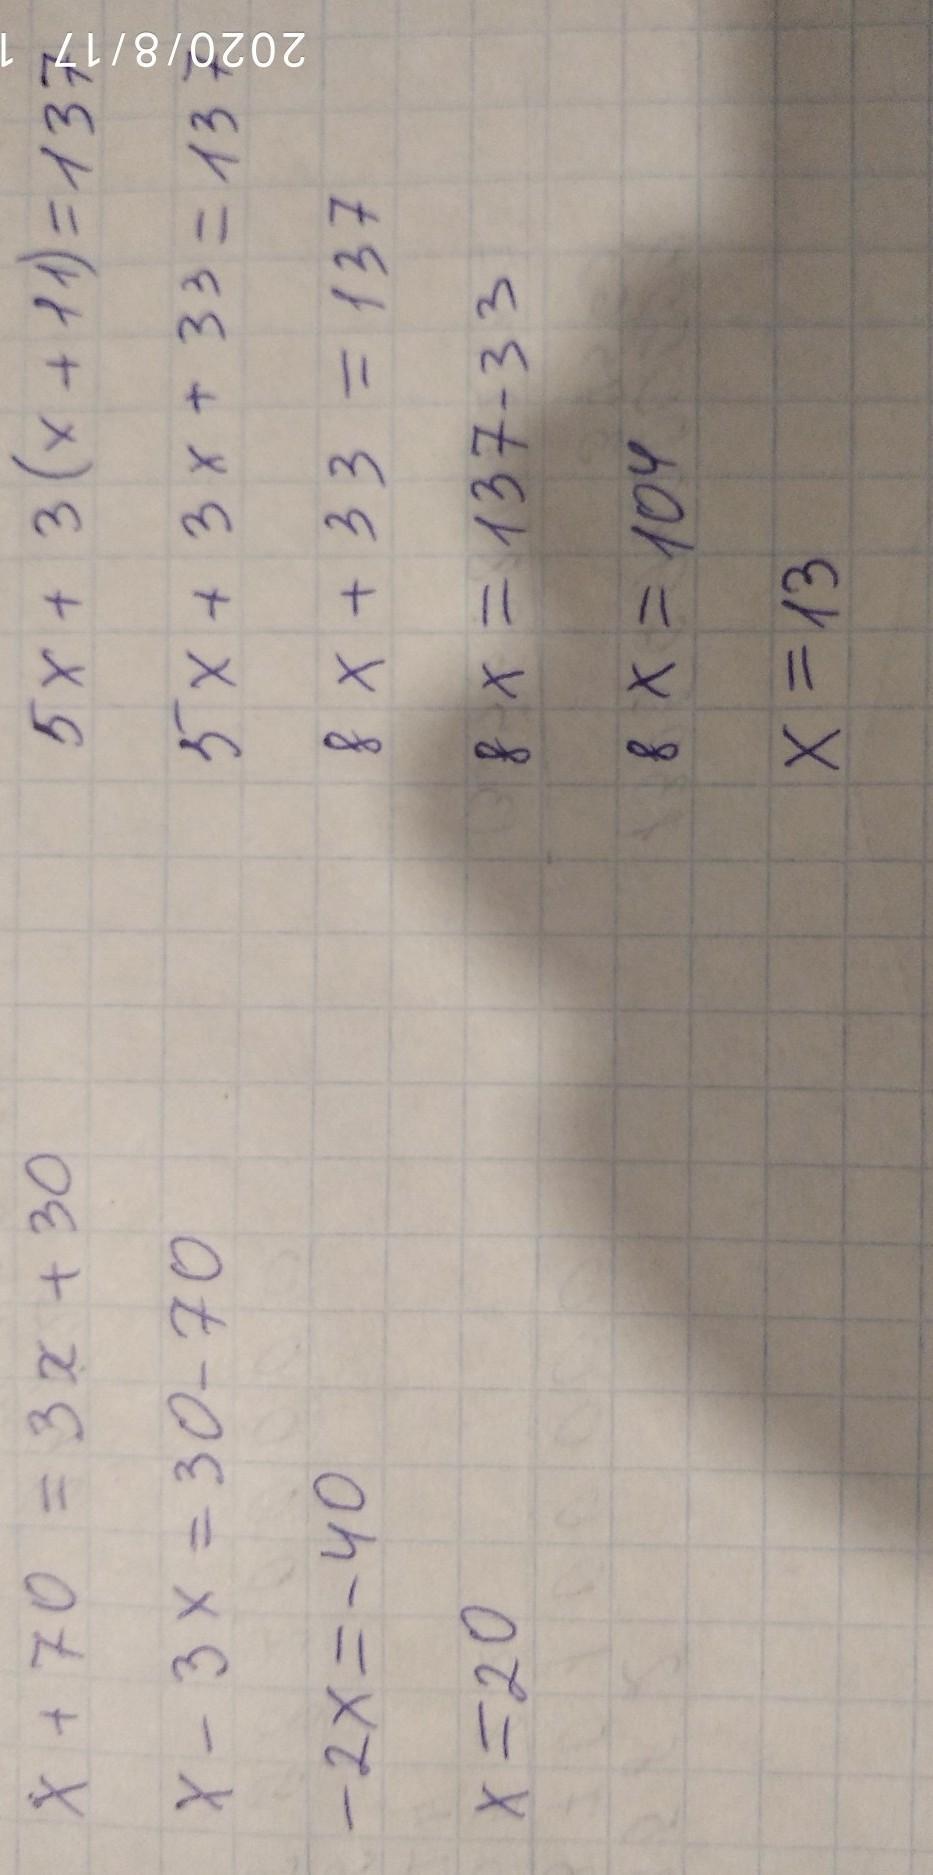 x + 70 = 3x + 30
x - 3x = 30 - 70
-2x = -40
x = 20
5x + 3(x + 11) = 137
5x + 3x + 33 = 137
8x + 33 = 137
8x = 137 - 33
8x = 104
x = 13
2020/8/17 1